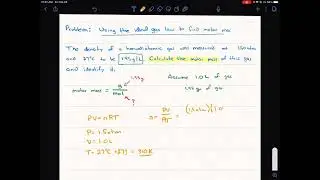 Problem: Using the ideal gas law to find molar mass
The density of a homodiatomic gas was measured at 1.50 atm
and 27°C to be 1.95 g/L. Calculate the molar mass of this gas
and identify it.
Assume 1.0 L of gas
1.95 g
molar mass = g/mol
1.95 g of gas
?
PV = nRT
n = PV/RT = (1.5 atm)(1.0
P = 1.5 atm
V = 1.0 L
T = 27°C + 273 = 300K